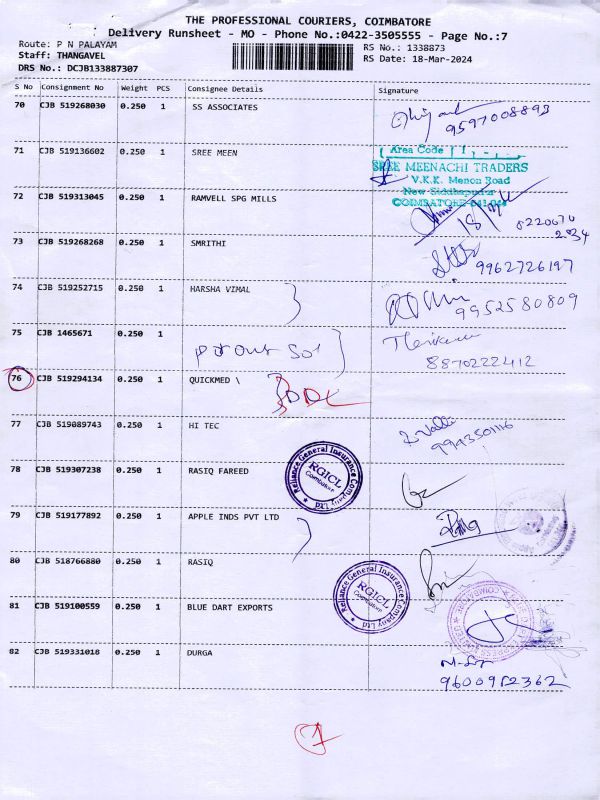 THE PROFESSIONAL COURIERS, COIMBATORE
Delivery Runsheet - MO - Phone No.:0422-3505555 - Page No.:7
Route: P N PALAYAM
RS No.: 1338873
Staff: THANGAVEL
RS Date: 18-Mar-2024
DRS No.: DCJB133887307
S No Consignment No Weight PCS Consignee Details Signature
70 CJB 519268030 0.250 1 SS ASSOCIATES
9597008893
71 CJB 519136602 0.250 1 SREE MEEN
Area Code
SREE MEENACHI TRADERS
V.K.K. Menon Road
New Siddhapudur
COIMBATORE-641 044
72 CJB 519313045 0.250 1 RAMVELL SPG MILLS
8220670
2034
73 CJB 519268268 0.250 1 SMRITHI
9962726197
74 CJB 519252715 0.250 1 HARSHA VIMAL
9952580809
75 CJB 1465671 0.250 1
8870222412
76 CJB 519294134 0.250 1 QUICKMED \
77 CJB 519089743 0.250 1 HI TEC
9943501116
78 CJB 519307238 0.250 1 RASIQ FAREED
Reliance General Insurance Company Ltd
RGICL
Coimbatore
79 CJB 519177892 0.250 1 APPLE INDS PVT LTD
80 CJB 518766880 0.250 1 RASIQ
Reliance General Insurance Company Ltd
RGICL
Coimbatore
81 CJB 519100559 0.250 1 BLUE DART EXPORTS
82 CJB 519331018 0.250 1 DURGA
9600952362
7